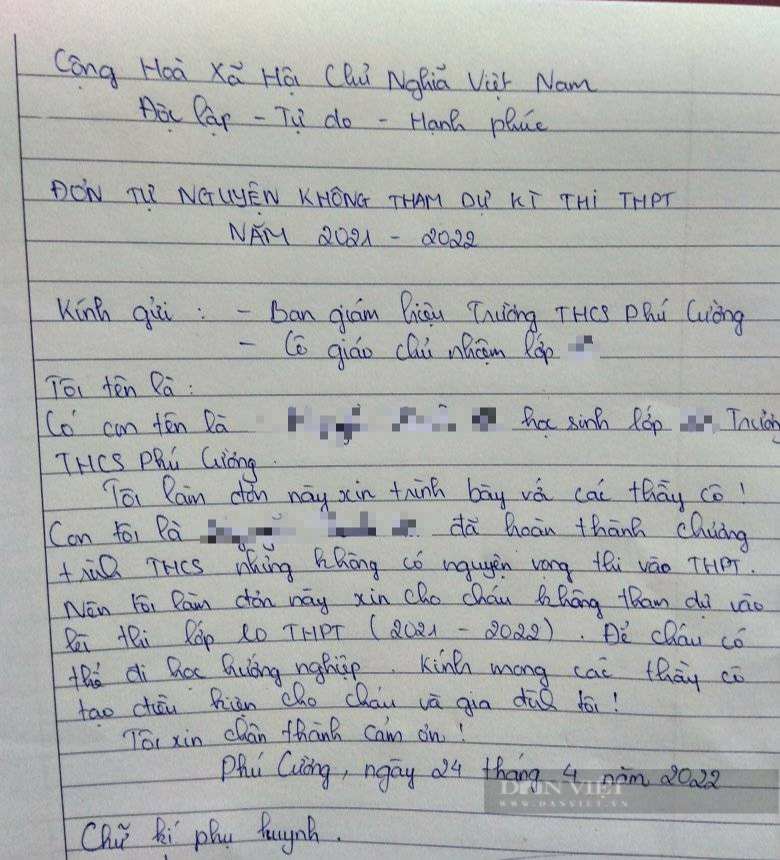 Cộng Hoà Xã Hội Chủ Nghĩa Việt Nam
Độc lập - Tự do - Hạnh phúc
ĐƠN TỰ NGUYỆN KHÔNG THAM DỰ KÌ THI THPT
NĂM 2021 - 2022
Kính gửi : - Ban giám hiệu Trường THCS Phú Cường
- Cô giáo chủ nhiệm lớp
Tôi tên là :
Có con tên là học sinh lớp Trường
THCS Phú Cường.
Tôi làm đơn này xin trình bày với các thầy cô !
Con tôi là đã hoàn thành chương
trình THCS nhưng không có nguyện vọng thi vào THPT.
Nên tôi làm đơn này xin cho cháu không tham dự vào
kì thi lớp 10 THPT (2021 - 2022). Để cháu có
thể đi học hướng nghiệp. Kính mong các thầy cô
tạo điều kiện cho cháu và gia đình tôi !
Tôi xin chân thành cảm ơn !
Phú Cường, ngày 24 tháng 4 năm 2022
DÂN VIỆT
WWW.DANVIET.VN
Chữ kí phụ huynh.